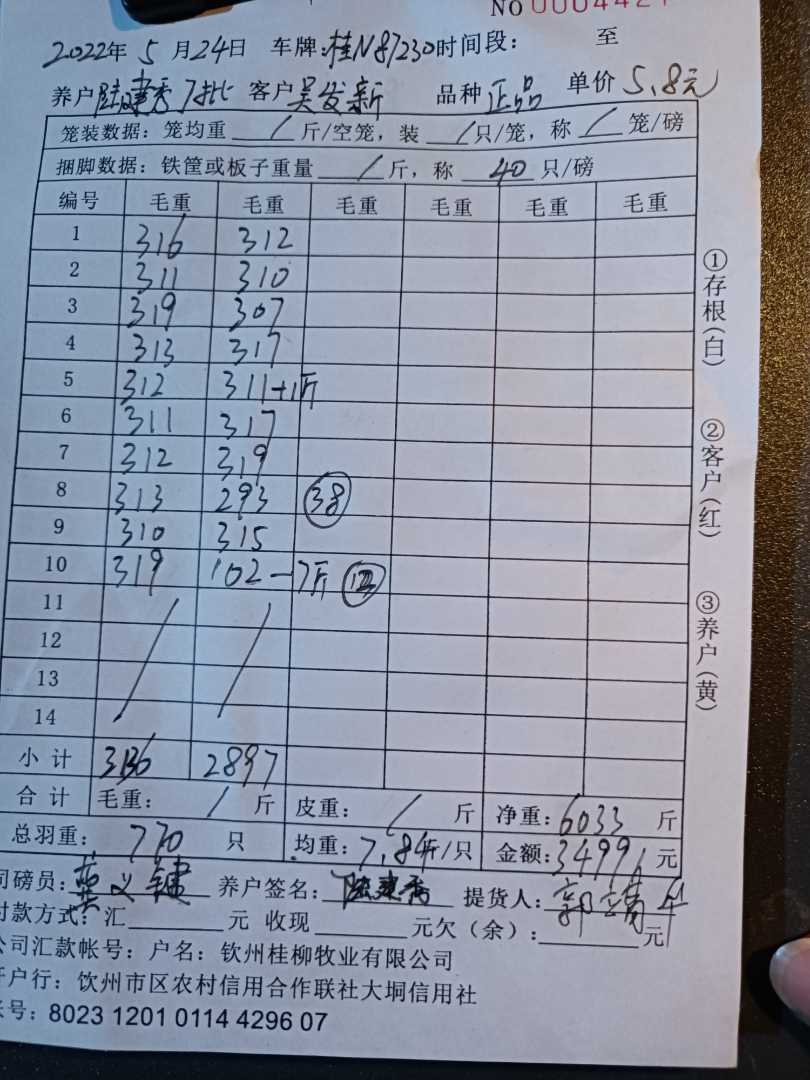 NO 0004421
2022年 5 月 24日 车牌:桂N87230 时间段: 至
养户 陆建秀7批 客户 吴发新 品种 正品 单价 5.8元
笼装数据: 笼均重 / 斤/空笼, 装 / 只/笼, 称 / 笼/磅
捆脚数据: 铁筐或板子重量 / 斤, 称 40 只/磅
编号 毛重 毛重 毛重 毛重 毛重 毛重
1 316 312
2 311 310
3 319 307
4 313 317
5 312 311+1斤
6 311 317
7 312 319
8 313 293 38
9 310 315
10 319 102-7斤
11
12
13
14
小计 3136 2897
合计 毛重: / 斤 皮重: / 斤 净重: 6033 斤
总羽重: 770 只 均重: 7.84斤/只 金额: 34991 元
司磅员: 养户签名: 陆建秀 提货人:
付款方式: 汇 元 收现 元欠(余): 元
公司汇款帐号: 户名: 钦州桂柳牧业有限公司
开户行: 钦州市区农村信用合作联社大垌信用社
帐号: 8023 1201 0114 4296 07
①存根(白)
②客户(红)
③养户(黄)